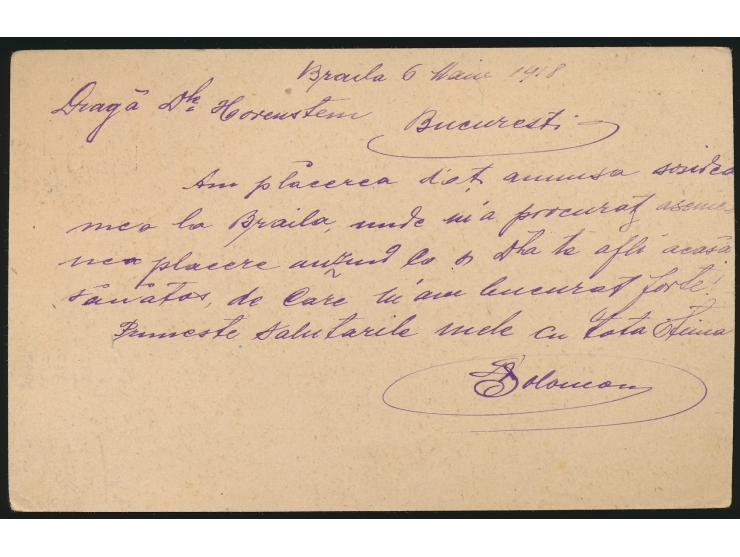 Braila 6 Maiu 1918
Dragă Dle Horenstein
Bucuresti
Am plăcerea a anunsa sosirea
mea la Braila, unde mi'a procurat aseme-
nea placere auzind că și Dta te afli acasă
sănătos, de care m'am bucurat forte!
Primeste Salutarile mele cu tota Stima
Solomon